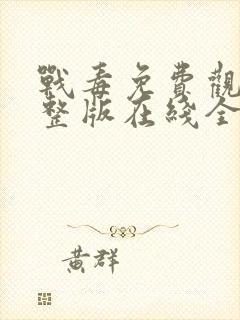 戰毒免費觀
整版在綫全
黃群